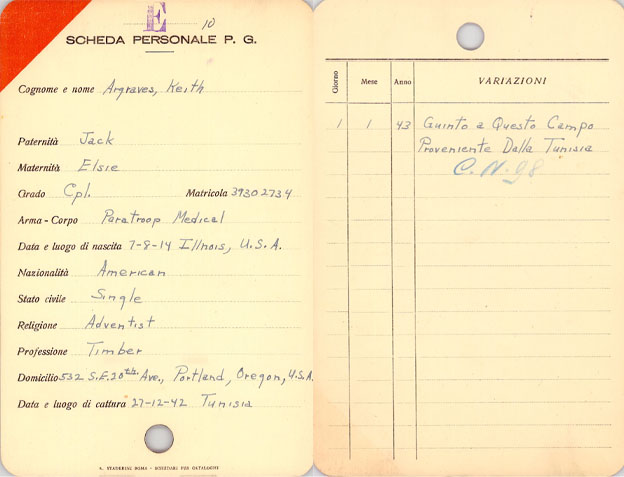 E
10
SCHEDA PERSONALE P. G.
Cognome e nome Argraves, Keith
Paternità Jack
Maternità Elsie
Grado Cpl. Matricola 39302734
Arma - Corpo Paratroop Medical
Data e luogo di nascita 7-8-14 Illnois, U.S.A.
Nazionalità American
Stato civile Single
Religione Adventist
Professione Timber
Domicilio 532 S.E. 20th. Ave., Portland, Oregon, U.S.A.
Data e luogo di cattura 27-12-42 Tunisia
A. STADERINI ROMA - SCHEDARI PER CATALOGHI
Giorno Mese Anno VARIAZIONI
1 1 43 Guinto a Questo Campo
Proveniente Dalla Tunisia
C. N. 98